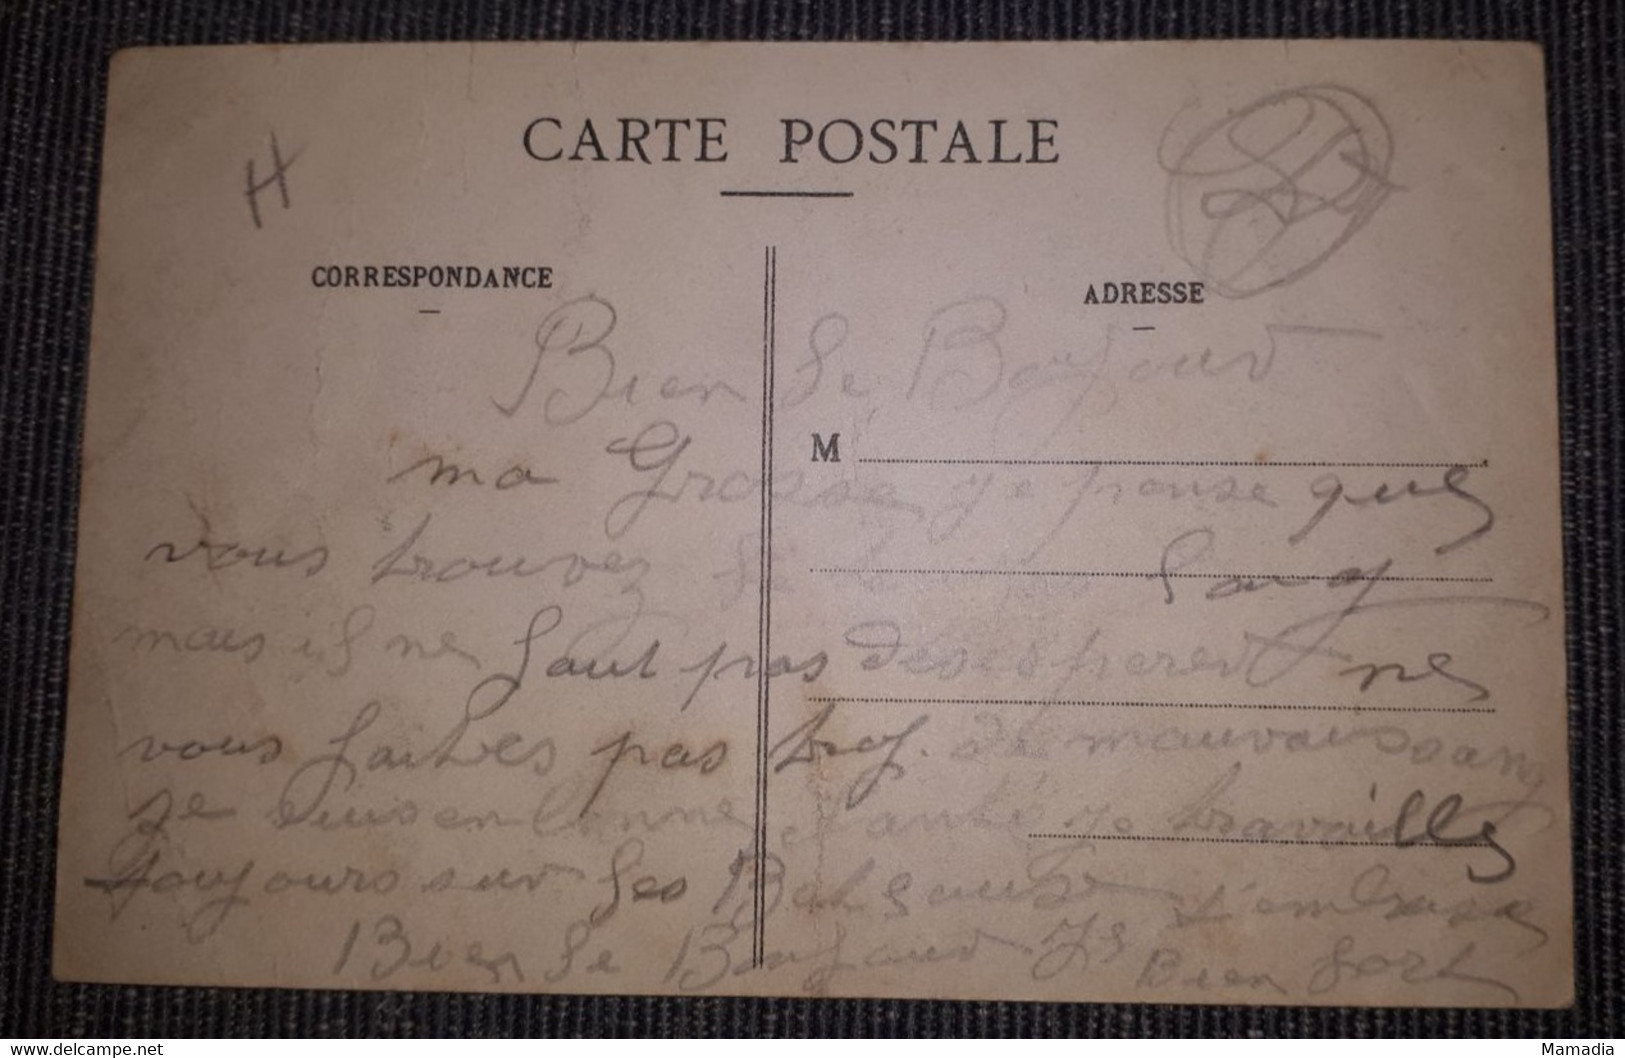 H
CARTE POSTALE
CORRESPONDANCE
ADRESSE
Bien le Bonjour
M
ma Grosse je pense que
vous trouvez le temps long
mais il ne faut pas desesperer ne
vous faites pas trop de mauvais sang
je suis en bonne santé je travaille
toujours sur les Bateaux t'embrasse
Bien le Bonjour Bien fort
www.delcampe.net
Mamadia